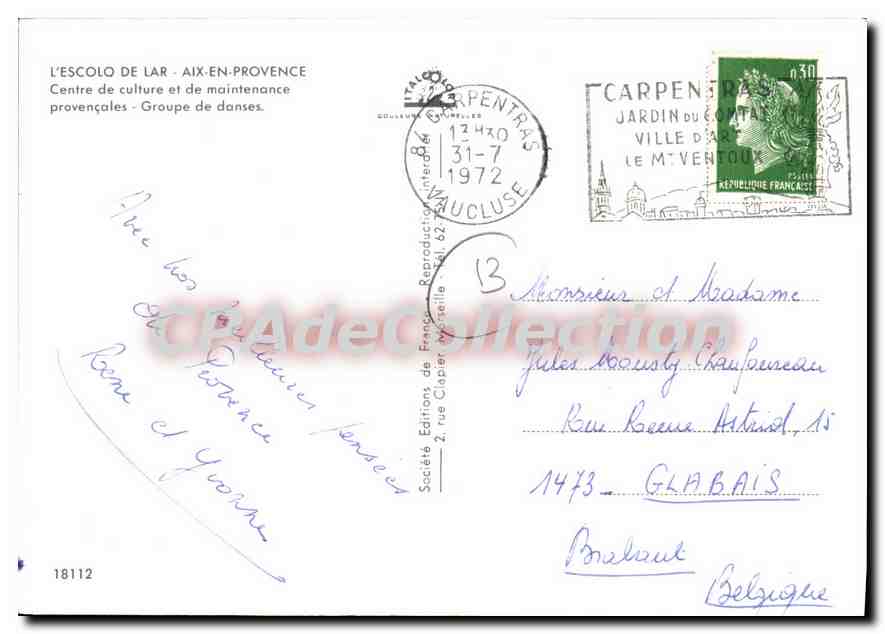 L'ESCOLO DE LAR - AIX-EN-PROVENCE
Centre de culture et de maintenance
provençales - Groupe de danses.
Avec nos meilleures pensées
de Provence
Rene et Yvonne
18112
ITALCOLOR
COULEURS NATURELLES
Société Editions de France - Reproduction interdite
2, rue Clapier Marseille - Tél. 62-
84 CARPENTRAS
31-7
1972
VAUCLUSE
CARPENTRAS
JARDIN DU COMTAT
VILLE D'ART
LE MT VENTOUX
0,30
POSTES
REPUBLIQUE FRANÇAISE
B
Monsieur et Madame
Jules Mousty Chaufoureau
Rue Reine Astrid, 15
1473 - GLABAIS
Brabant
Belgique
CPAdeCollection